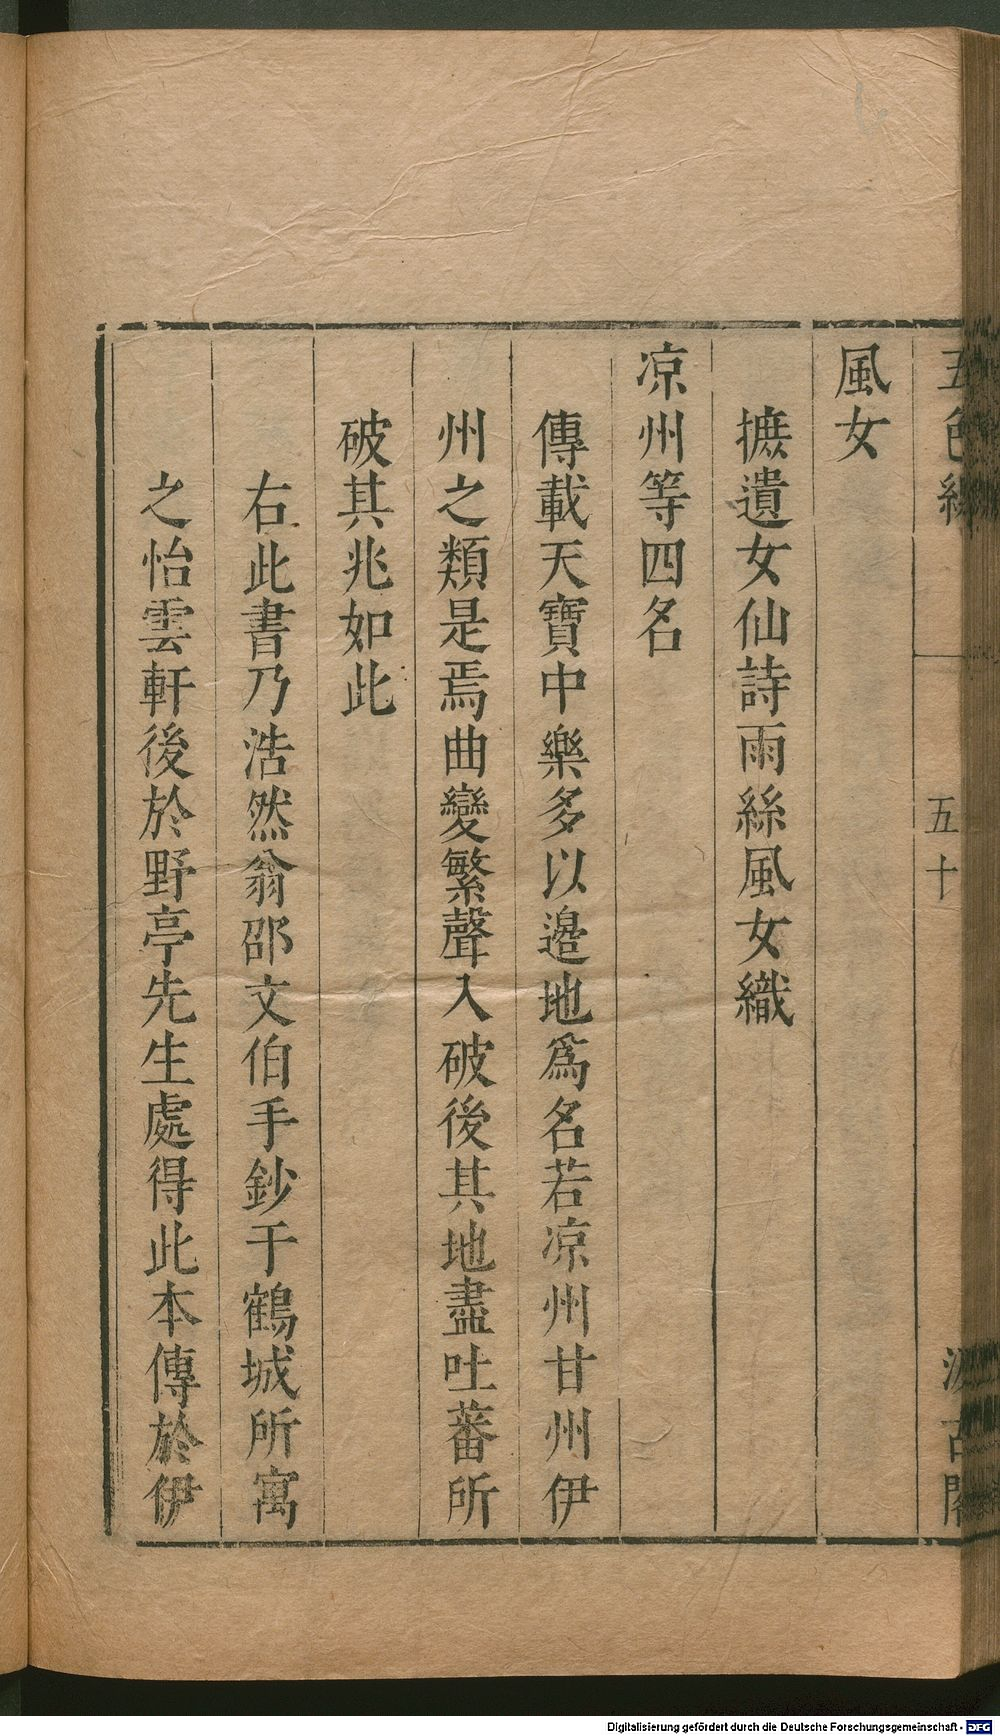 五色線
五十
汲古閣
風女
摭遺女仙詩雨絲風女織
凉州等四名
傳載天寶中樂多以邉地爲名若凉州甘州伊
州之類是焉曲變繁聲入破後其地盡吐蕃所
破其兆如此
右此書乃浩然翁邵文伯手鈔于鶴城所寓
之怡雲軒後於野亭先生處得此本傳於伊
Digitalisierung gefördert durch die Deutsche Forschungsgemeinschaft - DFG